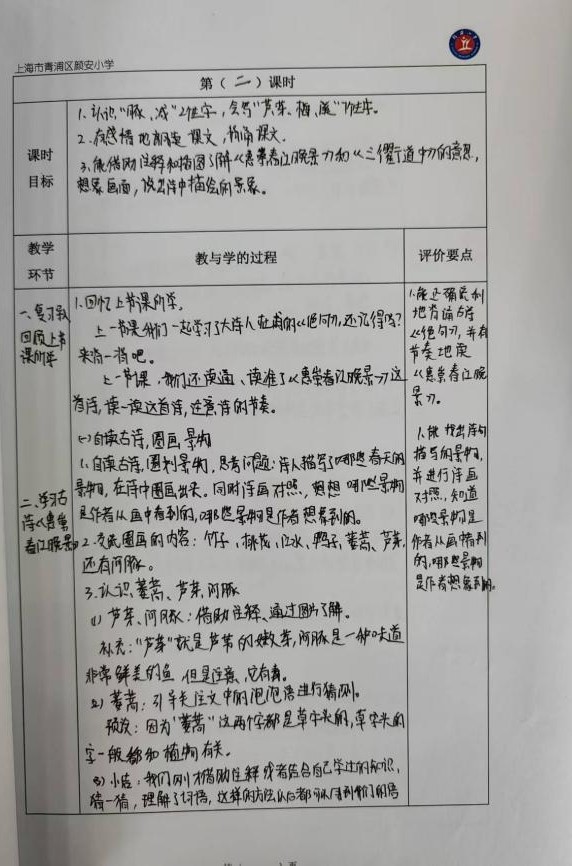 上海市青浦区颜安小学
第（二）课时
课时
目标
1.认识“豚、减”2个生字，会写“芦、芽、梅、减”
2.有感情地朗读课文，背诵课文。
3.能借助注释和插图了解《惠崇春江晚景》和《三衢道中》的意思，
想象画面，说出诗中描绘的景象。
教学
环节
教与学的过程
评价要点
一、复习
回顾上节
课所学
1.回忆上节课所学。
上一节课我们一起学习了大诗人杜甫的《绝句》，还记得吗？
来背一背吧。
上一节课，我们还读通、读准了《惠崇春江晚景》这
首诗，读一读这首诗，注意诗的节奏。
1.能正确流利
地背诵古诗
《绝句》，并有
节奏地读
《惠崇春江晚
景》。
二、学习古
诗《惠崇
春江晚景》
(一)自读古诗，圈画景物
1.自读古诗，圈划景物，思考问题：诗人描写了哪些春天的
景物，在诗中圈画出来。同时诗画对照，想想哪些景物
是作者从画中看到的，哪些景物是作者想象到的。
2.交流圈画的内容：竹子、桃花、江水、鸭子、蒌蒿、芦芽，
还有河豚。
3.认识蒌蒿、芦芽、河豚
(1)芦芽、河豚：借助注释、通过图片了解。
补充：“芦芽”就是芦苇的嫩芽，河豚是一种味道
非常鲜美的鱼，但是注意，它有毒。
(2)蒌蒿：引导关注文中的泡泡语进行猜测。
预设：因为“蒌蒿”这两个字都是草字头的，草字头的
字一般都和植物有关。
(3)小结：我们刚才借助注释或者结合自己学过的知识，
猜一猜，理解了词语，这样的方法以后都可以用到我们的语
1.能找出诗句
描写的景物，
并进行诗画
对照，知道
哪些景物是
作者从画中看到
的，哪些景物
是作者想象到的。